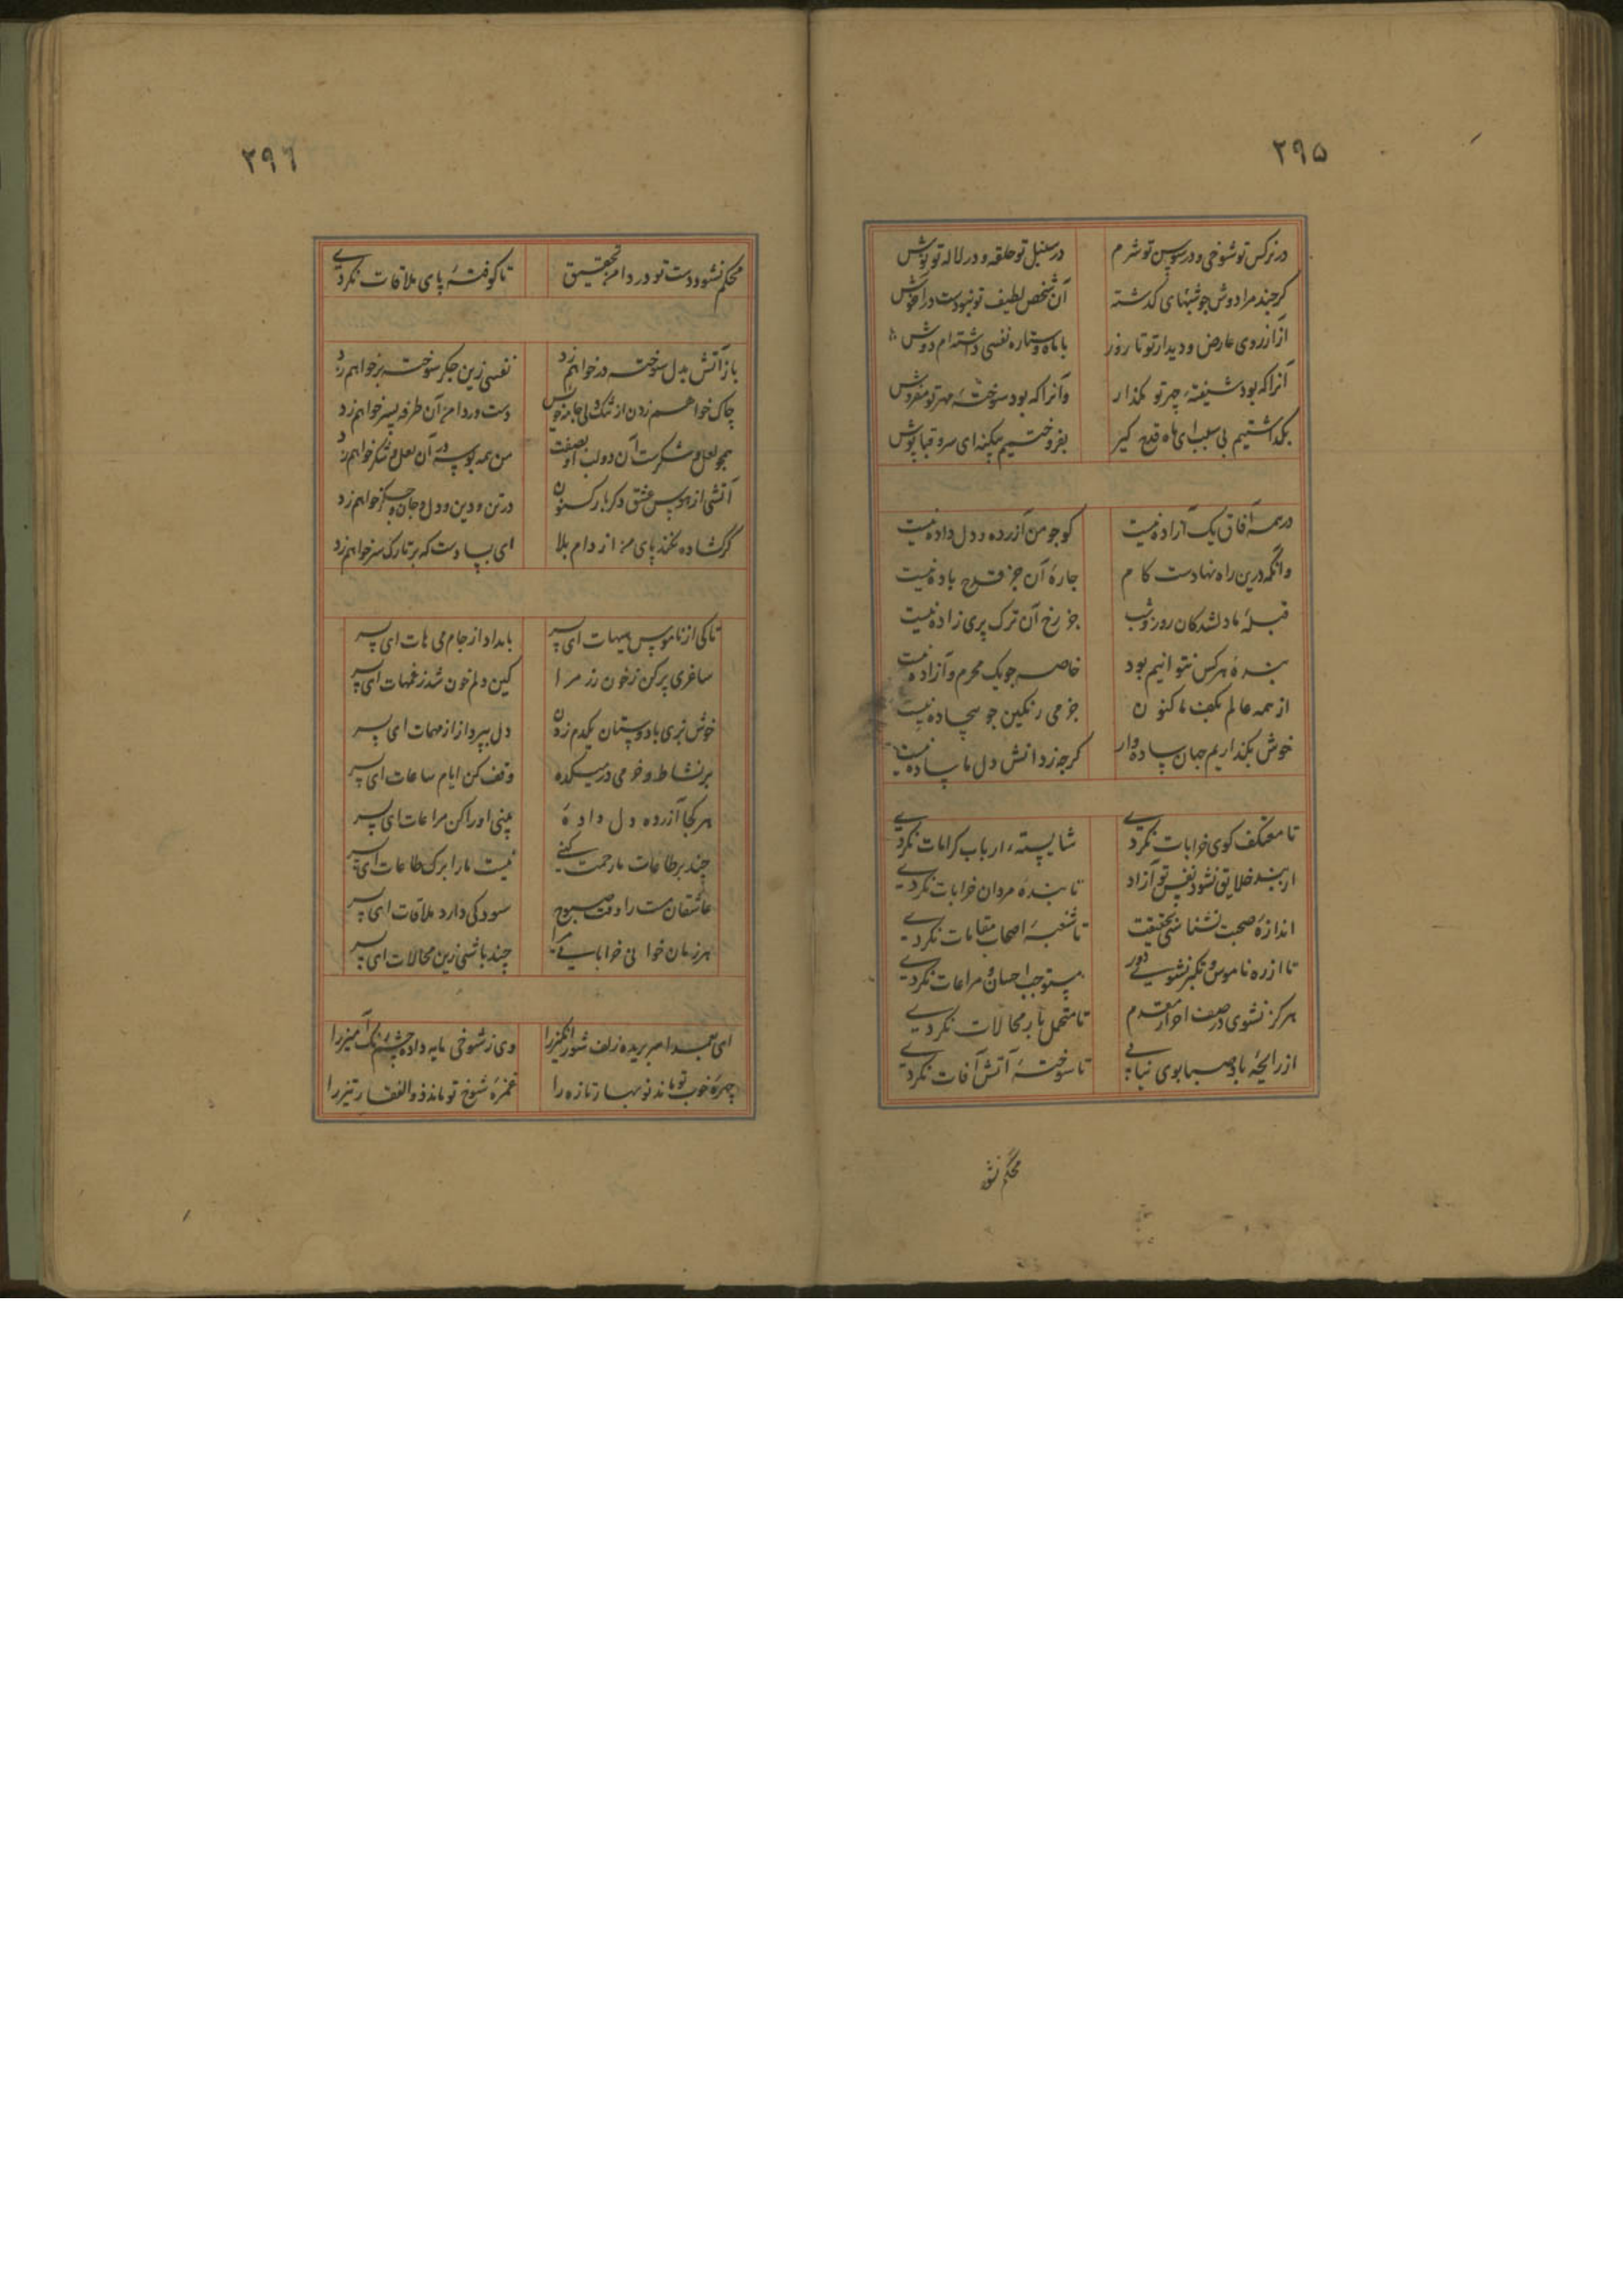 ۲۹۵
در نرکس تو شوخی و در سوسن تو شرم در سنبل تو حلقه و در لاله تو نوش
کرچند مرا دوش جو شبهای کذشته آن شخص لطیف تو نبودست در اغوش
از ارزوی عارض و دیدار تو تا روز با ماه و ستاره نفسی داشته‌ام دوش
آنرا که بود شیفتهٔ چهر تو مکذار وآنرا که بود سوختهٔ مهر تو مفروش
بکذاشتیم بی سبب ای ماه قدح کیر بفروختیم بیکنه ای سرو قباپوش
در همه آفاق یک آزاده نیست کو جو من آزرده و دل داده نیست
وانکه درین راه نهادست کام جارهٔ آن جز قدح باده نیست
قبلهٔ ما دلشدکان روز و شب جز رخ آن ترک پری زاده نیست
بندهٔ هرکس نتوانیم بود خاصه جو یک محرم و آزاده نیست
از همه عالم بکف ما کنون جز می رنکین جو بیجاده نیست
خوش بکذاریم جهان ساده‌وار کرجه ز دانش دل ما ساده نیست
تا معتکف کوی خرابات نکردی شایستهٔ ارباب کرامات نکردی
از بند خلایق نشود نفس تو آزاد تا بندهٔ مردان خرابات نکردی
اندازهٔ صحبت نشناسی بحقیقت تا شعبهٔ اصحاب مقامات نکردی
تا از ره ناموس و تکبر نشوی دور مستوجب احسان و مراعات نکردی
هرکز نشوی در صف احرار مقدم تا متحمل بار محالات نکردی
از رایحهٔ باد صبا بوی نیابی تا سوختهٔ آتش آفات نکردی
محکم نشو
۲۹۶
محکم نشود دست تو در دامن تحقیق تا کوفتهٔ پای ملاقات نکردی
باز آتش بدل سوخته در خواهم زد نفسی زین جکر سوخته بر خواهم زد
چاک خواهم زدن از تنک دلی جامه خویش دست در دامن آن طرفه پسر خواهم زد
همجو لعل و شکرست آن دو لب او بصفت من همه بوسه بر آن لعل و شکر خواهم زد
آتشی از هوس عشق دکر بار کنون در تن و دین و دل و جان و جکر خواهم زد
کر کشاده نکند پای من از دام بلا ای بسا دست که بر تارک سر خواهم زد
تا کی از ناموس هیهات ای پسر بامداد از جام می هات ای پسر
ساغری پر کن ز خون رز مرا کین دلم خون شد ز غمهات ای پسر
خوش بزی با دوستان یکدم زدن دل بپرداز از مهمات ای پسر
بر نشاط و خرمی در میکده وقف کن ایام ساعات ای پسر
هر کجا آزرده دل دادهٔ بینی او را کن مراعات ای پسر
چند بر طاعات ما رحمت کنی نیست ما را برک طاعات ای پسر
عاشقان مست را وقت صبوح سود کی دارد ملاقات ای پسر
هر زمان خوانی خراباتی مرا چند باشی زین محالات ای پسر
ای عمدا سر بریده زلف شورانکیز را وی ز شوخی مایه داده چشم رنک آمیز را
چهرهٔ خوب تو ماند نوبهار تازه را غمزهٔ شوخ تو ماند ذوالفقار تیز را